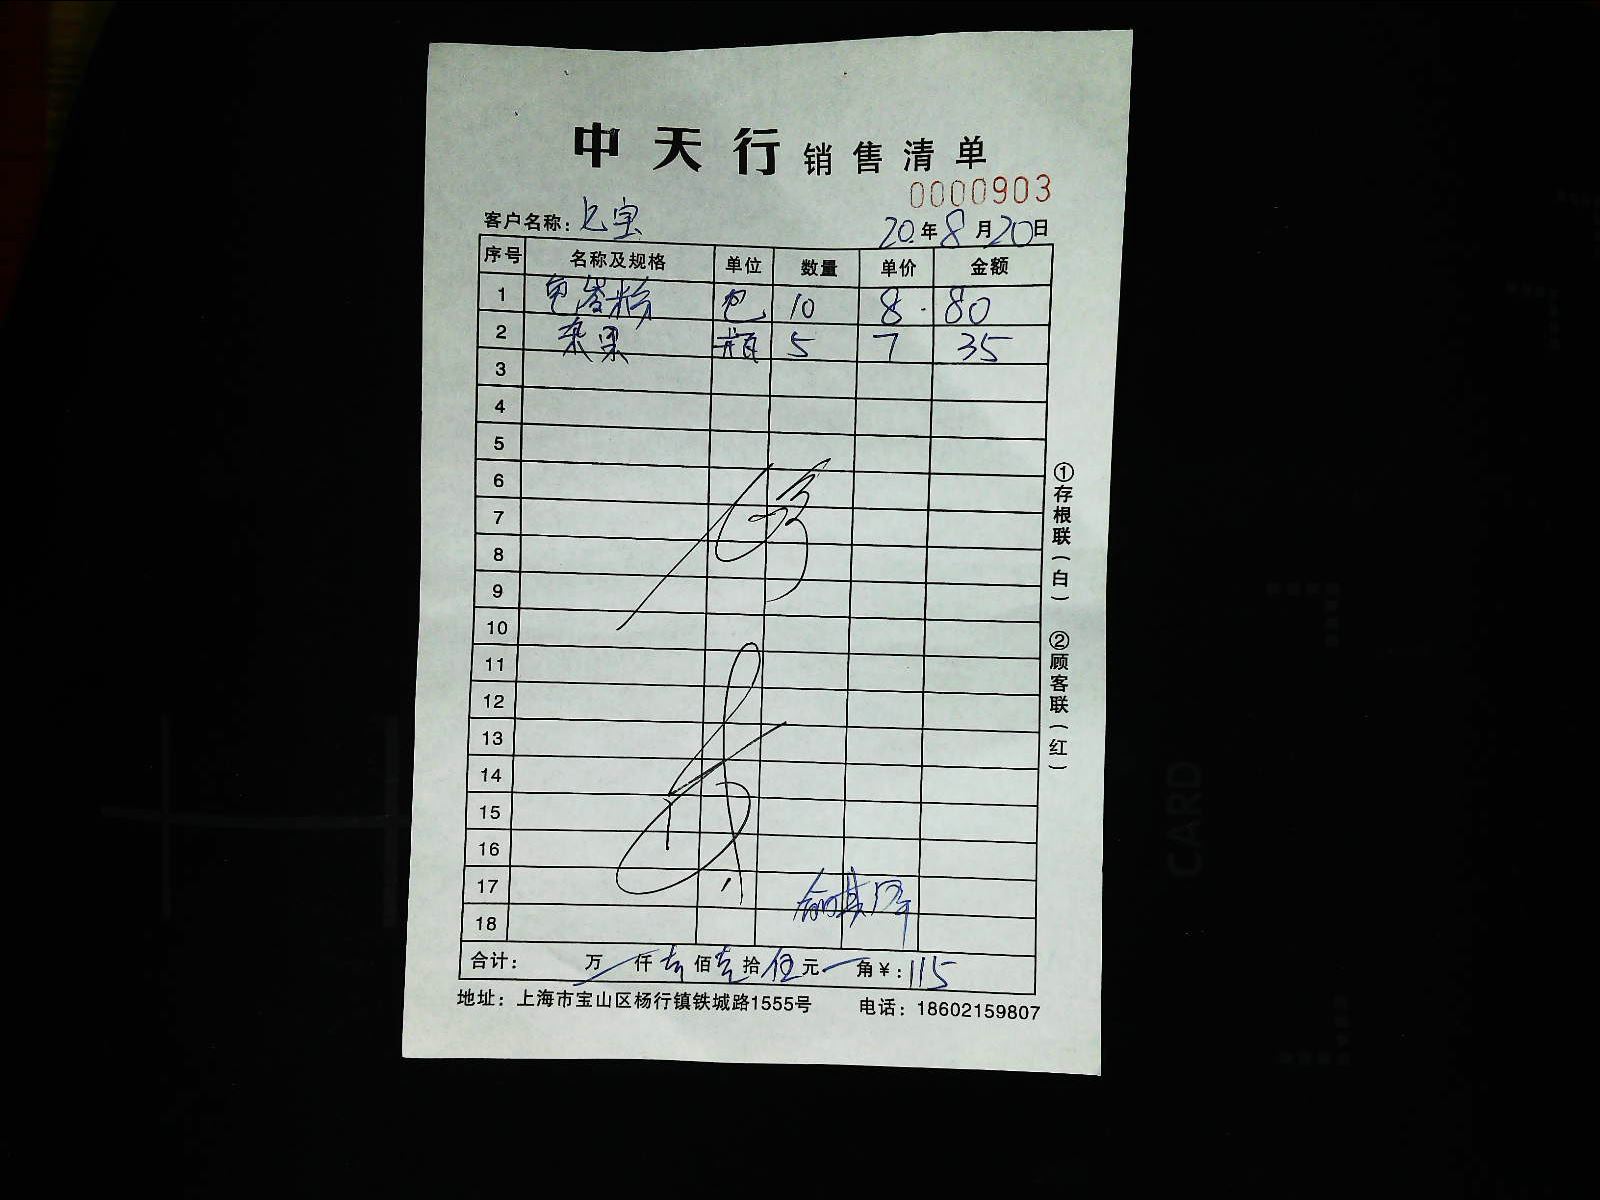 中天行销售清单
0000903
客户名称：上宝
20年8月20日
序号 名称及规格 单位 数量 单价 金额
1 包 10 8 80
2 杂果 瓶 5 7 35
3
4
5
6
7
8
9
10
11
12
13
14
15
16
17
18
合计： 万 仟壹佰壹拾伍元 角￥：115
地址：上海市宝山区杨行镇铁城路1555号 电话：18602159807
①存根联（白） ②顾客联（红）
CARD